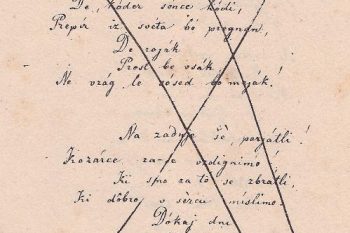 De, kóder sonce hódi,
Prepír iz svéta bó pregnàn,
De roják
Prost be vsák
Ne vràg, le sósed bo meják!
Na zadnje šè, perjátli!
Kozárce za-se vzdignimo
Ki smo za tó se zbratli,
Ki dôbro v sèrcu mislimo.
Dókaj dni